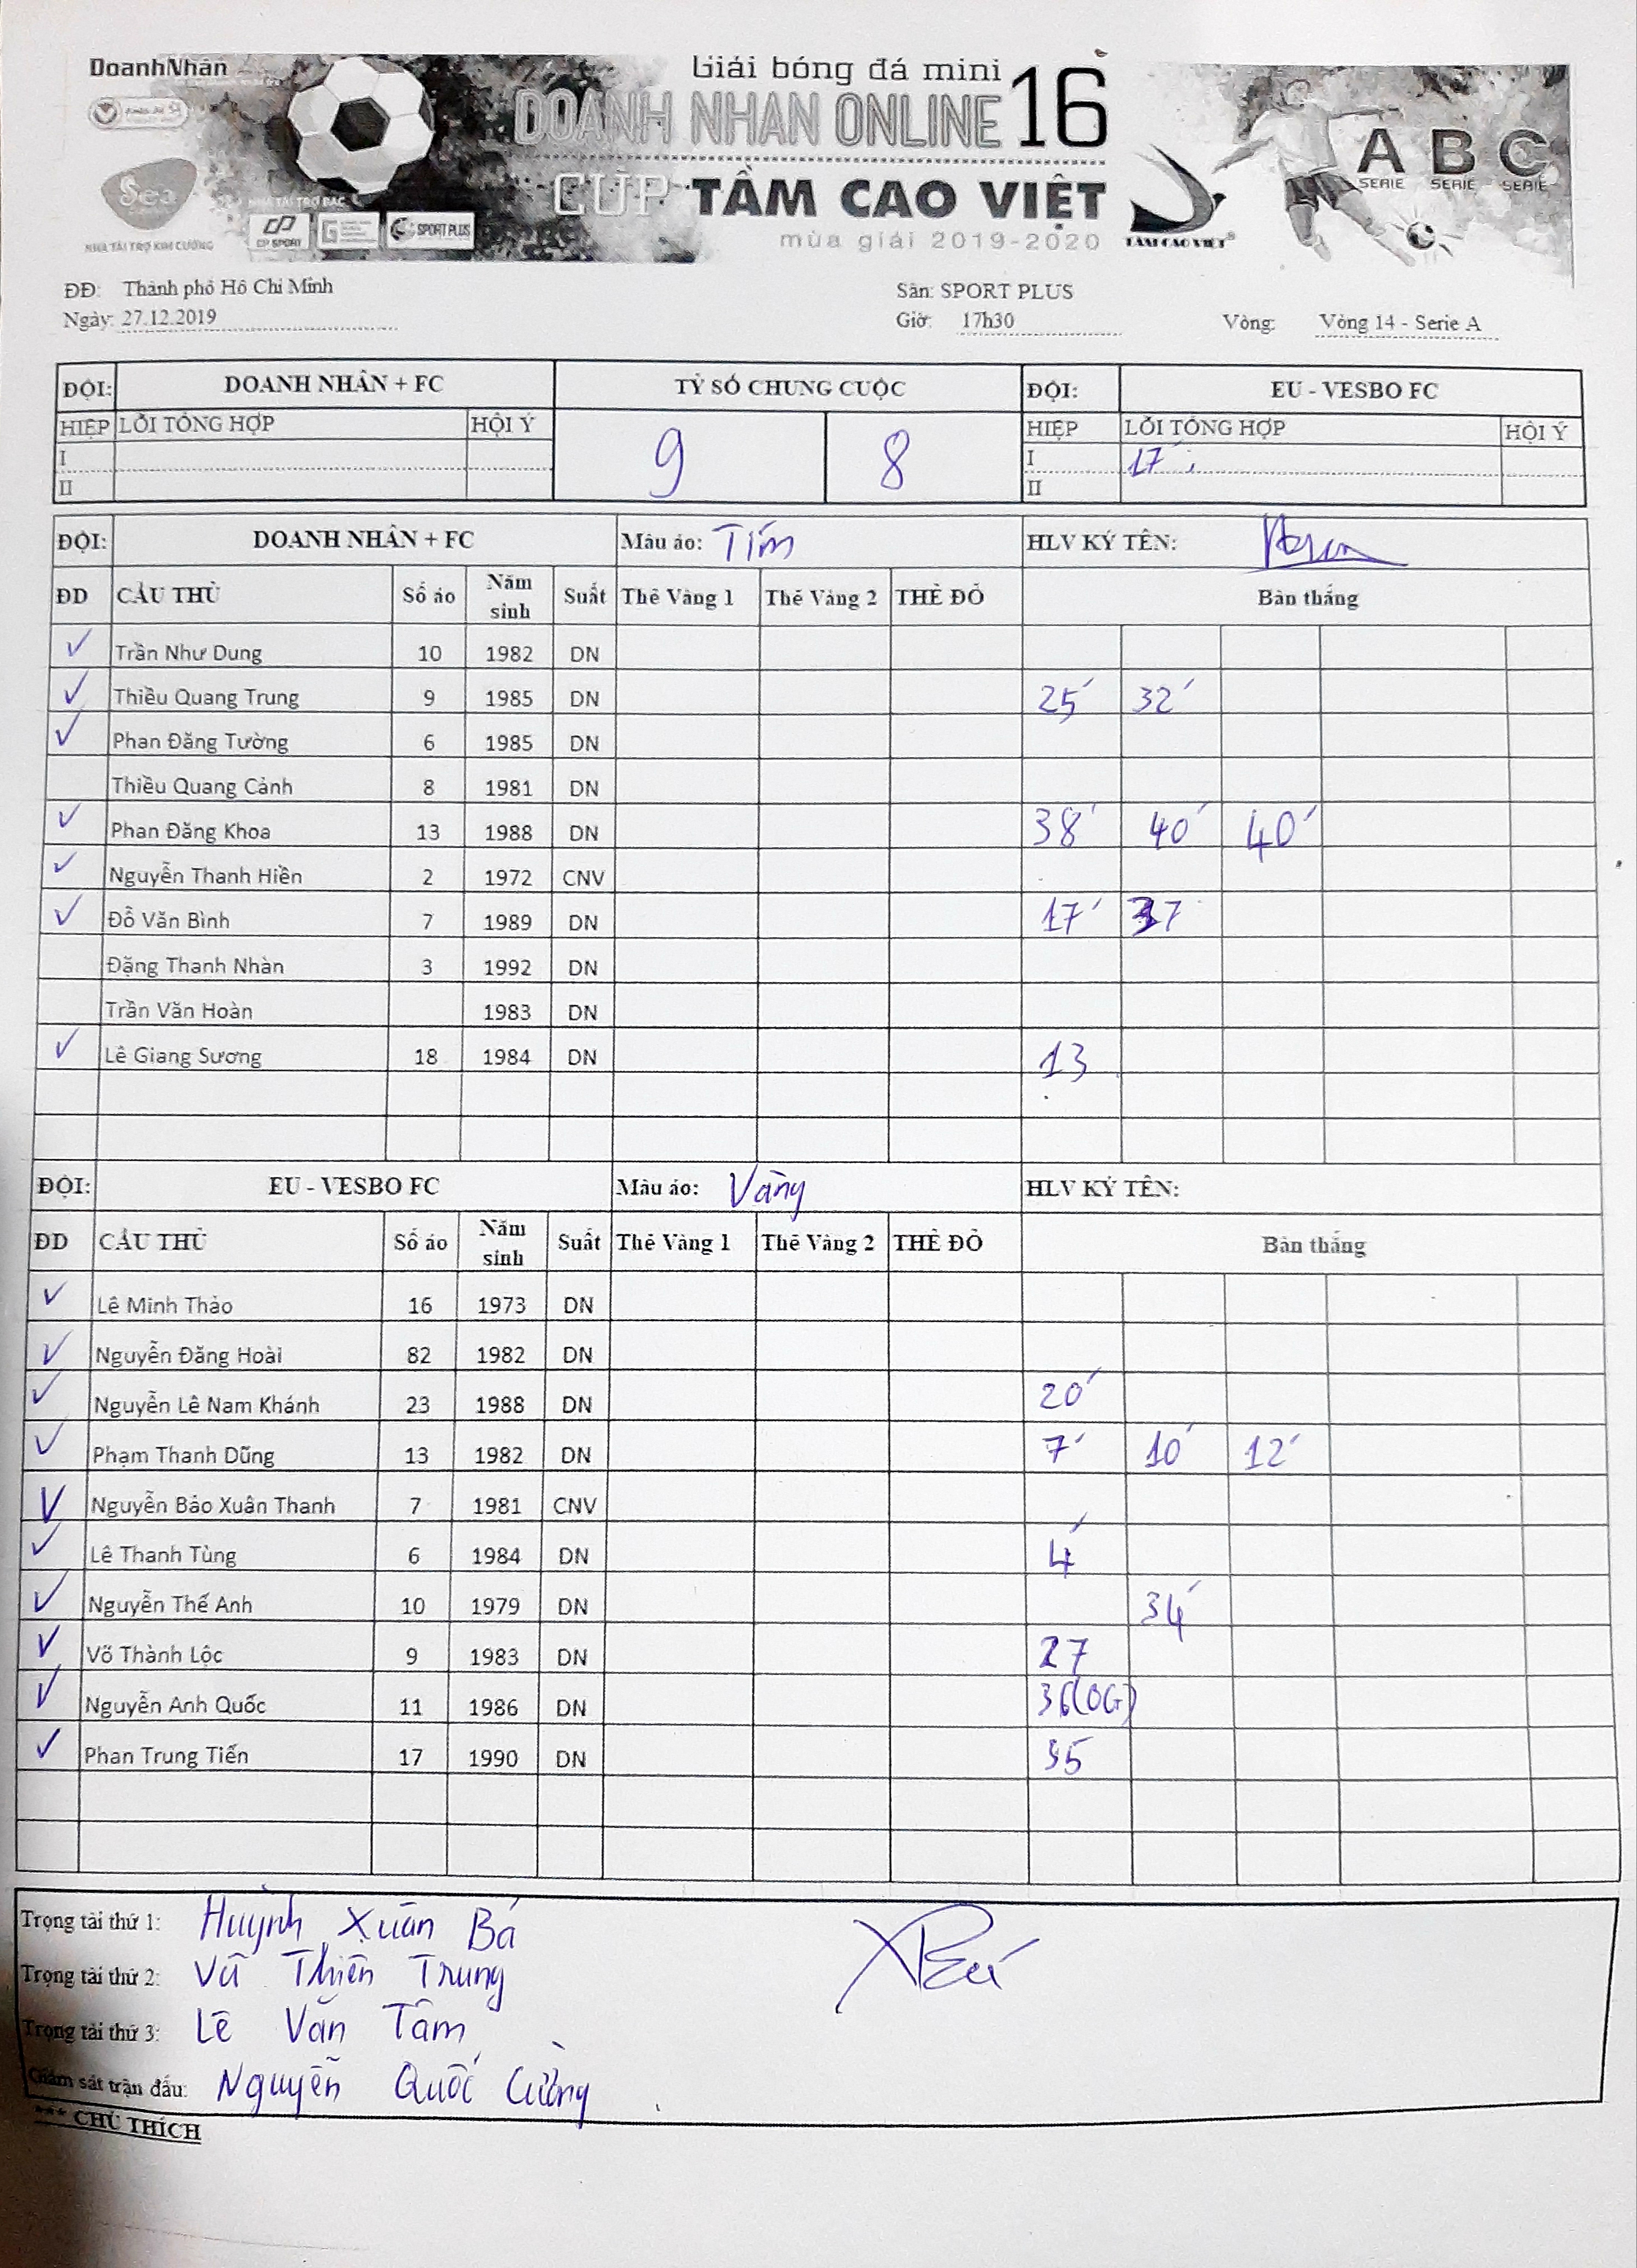 DoanhNhân
Giải bóng đá mini
DOANH NHAN ONLINE 16
CUP TẦM CAO VIỆT
mùa giải 2019-2020
Sea
NHÀ TÀI TRỢ KIM CƯƠNG
NHÀ TÀI TRỢ BẠC
CP SPORT
SPORT PLUS
TẦM CAO VIỆT
A B C
SERIE SERIE SERIE
ĐĐ: Thành phố Hồ Chí Minh Sân: SPORT PLUS
Ngày: 27.12.2019 Giờ: 17h30 Vòng: Vòng 14 - Serie A
ĐỘI: DOANH NHÂN + FC TỶ SỐ CHUNG CUỘC ĐỘI: EU - VESBO FC
HIỆP LỖI TỔNG HỢP HỘI Ý 9 8 HIỆP LỖI TỔNG HỢP HỘI Ý
I I 17'
II II
ĐỘI: DOANH NHÂN + FC Màu áo: Tím HLV KÝ TÊN:
ĐD CẦU THỦ Số áo Năm sinh Suất Thẻ Vàng 1 Thẻ Vàng 2 THẺ ĐỎ Bàn thắng
✓ Trần Như Dung 10 1982 DN
✓ Thiều Quang Trung 9 1985 DN 25' 32'
✓ Phan Đăng Tường 6 1985 DN
Thiều Quang Cảnh 8 1981 DN
✓ Phan Đăng Khoa 13 1988 DN 38' 40' 40'
✓ Nguyễn Thanh Hiền 2 1972 CNV
✓ Đỗ Văn Bình 7 1989 DN 17' 37
Đặng Thanh Nhàn 3 1992 DN
Trần Văn Hoàn 1983 DN
✓ Lê Giang Sương 18 1984 DN 13
ĐỘI: EU - VESBO FC Màu áo: Vàng HLV KÝ TÊN:
ĐD CẦU THỦ Số áo Năm sinh Suất Thẻ Vàng 1 Thẻ Vàng 2 THẺ ĐỎ Bàn thắng
✓ Lê Minh Thảo 16 1973 DN
✓ Nguyễn Đăng Hoài 82 1982 DN
✓ Nguyễn Lê Nam Khánh 23 1988 DN 20'
✓ Phạm Thanh Dũng 13 1982 DN 7' 10' 12'
✓ Nguyễn Bảo Xuân Thanh 7 1981 CNV
✓ Lê Thanh Tùng 6 1984 DN 4'
✓ Nguyễn Thế Anh 10 1979 DN 34'
✓ Võ Thành Lộc 9 1983 DN 27
✓ Nguyễn Anh Quốc 11 1986 DN 36(OG)
✓ Phan Trung Tiến 17 1990 DN 35
Trọng tài thứ 1: Huỳnh Xuân Bá
Trọng tài thứ 2: Vũ Thiên Trung
Trọng tài thứ 3: Lê Văn Tâm
Giám sát trận đấu: Nguyễn Quốc Cường
*** CHÚ THÍCH